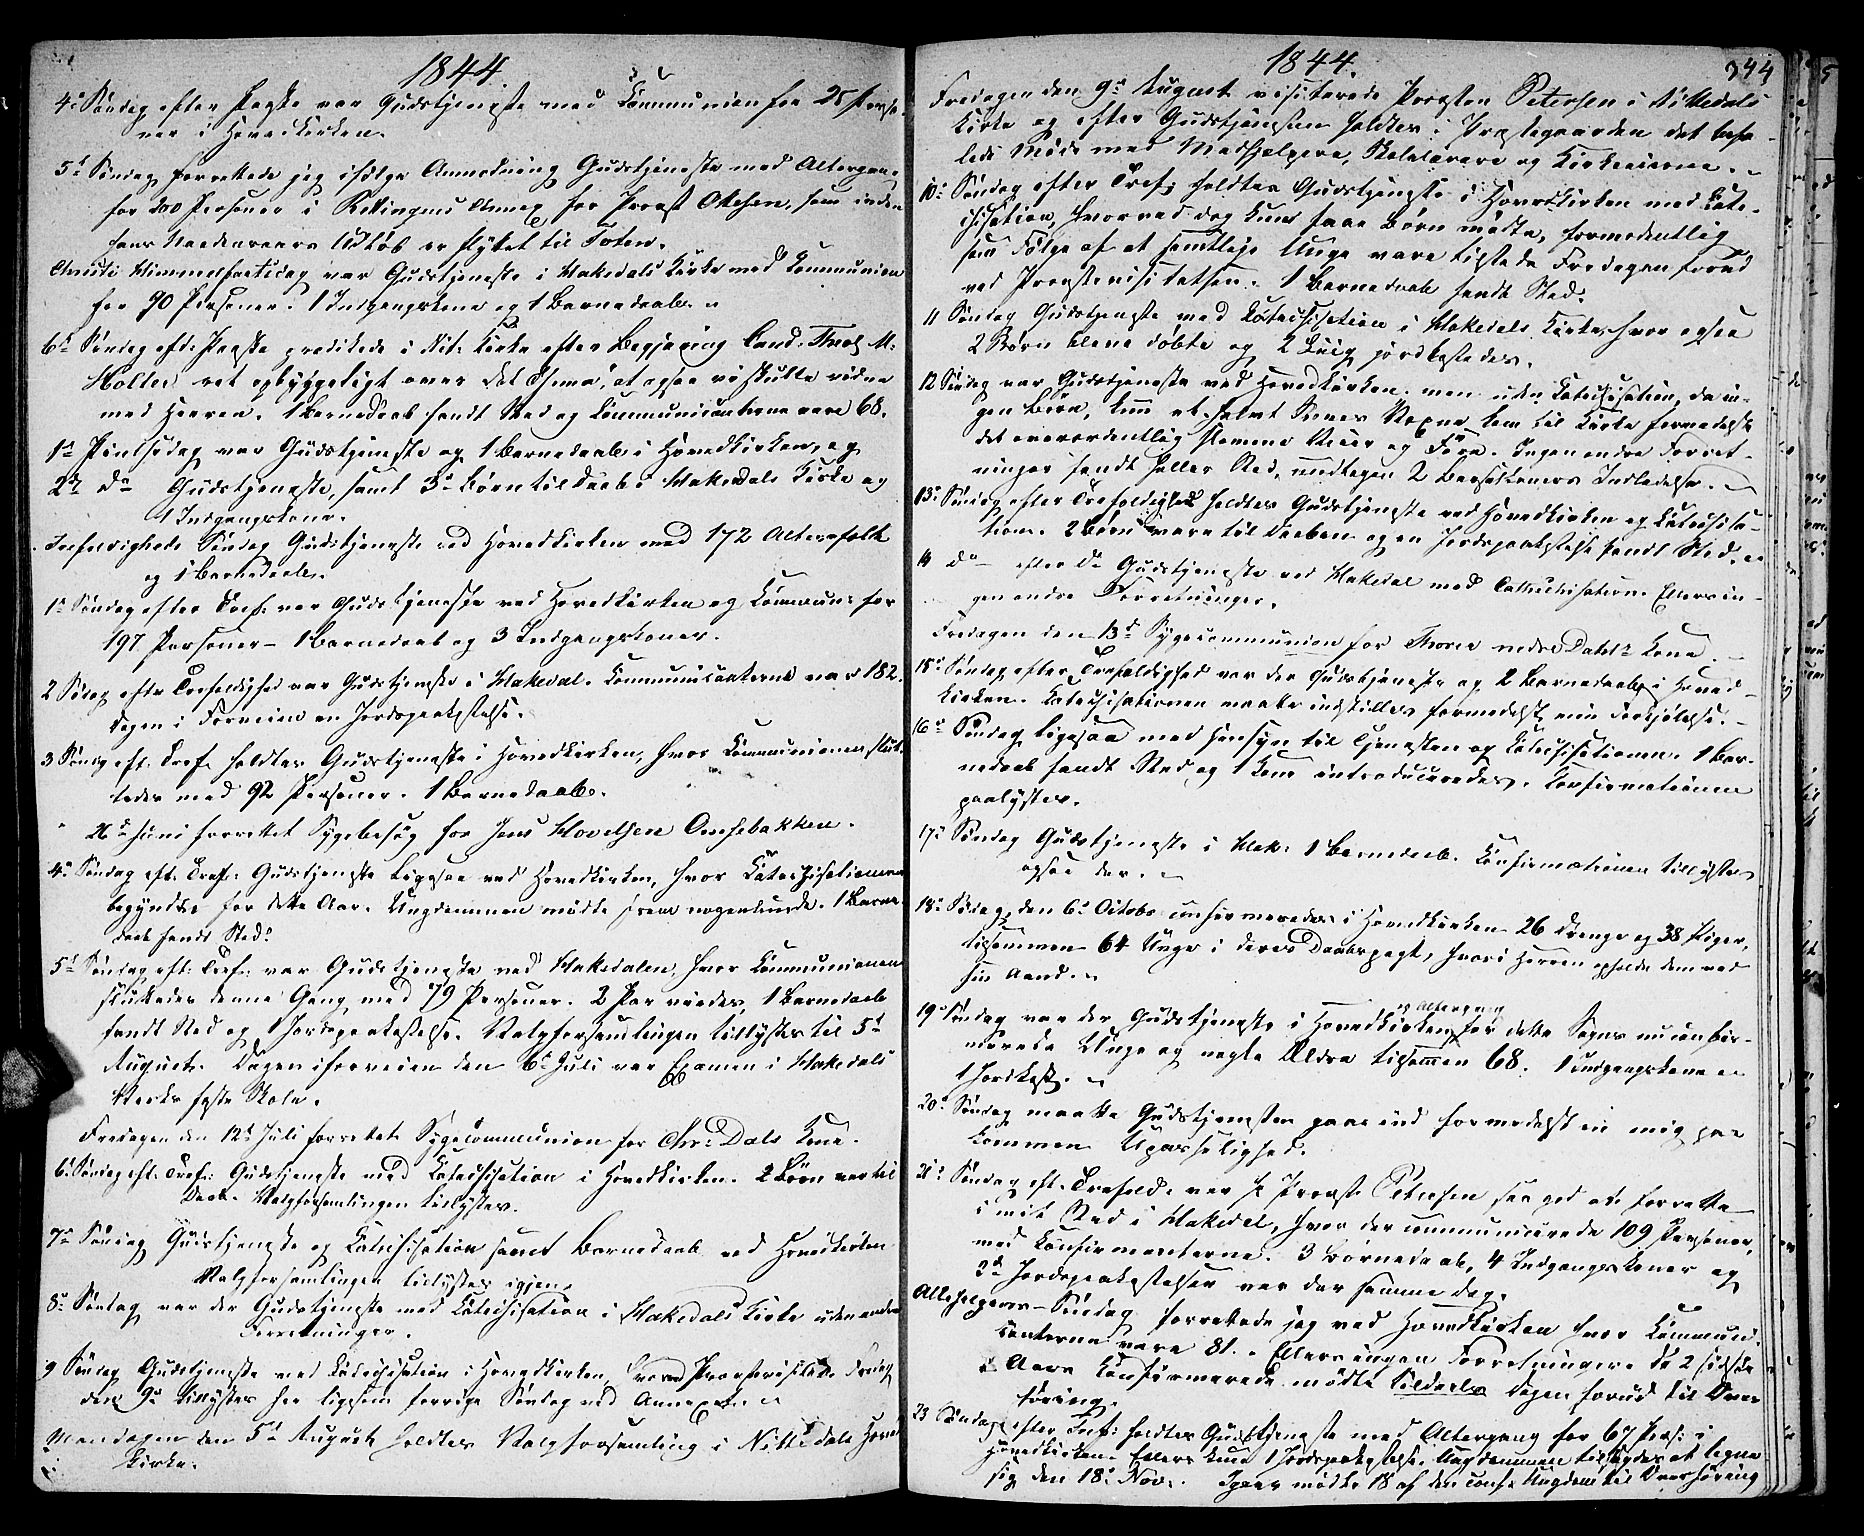 1844.
4de Søndag efter Paaske var Gudstjeneste med Communion for 25 Perso-
ner i Hovedkirken.
5te Søndag forrettede jeg ifølge Anmodning Gudstjeneste med Altergang
for 200 Personer i Annex for Provst som inden
hans Naadensaars Udløb er flyttet til Toten.
Christi Himmelfartsdag var Gudstjeneste i Hakedals Kirke med Communion
for 90 Personer. 1 Indgangskone og 1 Barnedaab.
6te Søndag eft. Paaske prædikede i Nit. Kirke efter Begjæring Cand. Theol. M.
Holter ret opbyggeligt over det Thema, at ogsaa vi skulle vidne
med Herren. 1 Barnedaab fandt Sted og Communicanterne vare 68.
1ste Pintsedag var Gudstjeneste og 1 Barnedaab i Hovedkirken, og
2den do Gudstjeneste, samt 3 Børn til Daab i Hakedals Kirke og
1 Indgangskone.
Trefoldigheds Søndag Gudstjeneste ved Hovedkirken med 172 Altersfolk
og 1 Barnedaab.
1ste Søndag efter Tref. var Gudstjeneste ved Hovedkirken og Commun. for
197 Personer – 1 Barnedaab og 3 Indgangskoner.
2 Søndag efter Trefoldighed var Gudstjeneste i Hakedal. Communicanterne var 182.
Dagen i Forveien en Jordspaakastelse.
3 Søndag eft. Tref. holdtes Gudstjeneste i Hovedkirken, hvor Communionen slut-
tedes med 92 Personer. 1 Barnedaab.
26de Juni forrettet Sygebesøg for Jens Hovelsen
4de Søndag eft. Tref. Gudstjeneste ligesaa ved Hovedkirken, hvor Catechisationen
begyndte for dette Aar. Ungdommen mødte nogenlunde. 1 Barne-
daab fandt Sted.
5te Søndag eft. Tref. var Gudstjeneste ved Hakedalen, hvor Communionen
sluttedes denne Gang med 79 Personer. 2 Par viedes, 1 Barnedaab
fandt Sted og 1 Jordspaakastelse. Valgforsamlingen tillystes til 5te
August. Dagen i Forveien den 6te Juli var Examen i Hakedals
Værks faste Skole.
Fredagen den 12te Juli forrettet Sygecommunion for Chr. Dals Kone.
6te Søndag eft. Tref. Gudstjeneste med Catechisation i Hovedkirken. 2 Børn var til
Daab. Valgforsamlingen tillystes.
7de Søndag Gudstjeneste og Catechisation samt Barnedaab ved Hovedkirken
Valgforsamlingen tillystes igjen.
8de Søndag var der Gudstjeneste med Catechisation i Hakedals Kirke uden andre
Forretninger.
9 Søndag Gudstjeneste med Catechisation i Hovedkirken, Provstevisitats Fredag
den 9de tillystes her ligesom forrige Søndag ved Annexet.
Mandagen den 5te August holdtes Valgforsamling i Nittedals Hoved
Kirke.
1844.
344
Fredagen den 9de August visiterede Provsten Petersen i Nittedals
Kirke og efter Gudstjenesten holdtes i Præstegaarden det befa-
lede Møde med Medhjælpere, Skolelærere og Kirkeeierne.
10de Søndag efter Tref. holdtes Gudstjeneste i Hovedkirken med Cate-
chisation, hvorved dog kuns faae Børn mødte, formodentlig
som Følge af at samtlige Unge vare tilstede Fredagen forud
ved Provstevisitatsen. 1 Barnedaab fandt Sted.
11 Søndag Gudstjeneste med Catechisation i Hakedals Kirke, hvor ogsaa
2 Børn bleve døbte og 2 Liig jordfæstedes.
12 Søndag var Gudstjeneste ved Hovedkirken men uden Catechisation, da in-
gen Børn, kun et halvt Voxne kom til Kirke formedelst
det overordentlig slemme Veir og Føre. Ingen andre Forret-
ninger fandt heller Sted, undtagen 2 Barselkoners Indledelse.
13de Søndag efter Trefoldighed holdtes Gudstjeneste ved Hovedkirken og Catechisa-
tion. 2 Børn vare til Daaben og en Jordspaakastelse fandt Sted.
14 do efter do Gudstjeneste ved Hakedal med Catechisation. Ellers in-
gen andre Forretninger.
Fredagen den 13de Sygecommunion for Thores nedre Dahls Kone.
15de Søndag efter Trefoldighed var der Gudstjeneste og 2 Barnedaab i Hoved-
kirken. Catechisationen maatte indstilles formedelst min Forkjølelse.
16de Søndag ligesaa med Hensyn til Tjenesten og Catechisationen. 1 Bar-
nedaab fandt Sted og 1 Kone introduceredes. Confirmationen
paalystes.
17de Søndag Gudstjeneste i Hak. 1 Barnedaab. Confirmationen tillystes
ogsaa der.
18de Søndag, den 6te Octobr confirmeredes i Hovedkirken 26 Drenge og 38 Piger,
tilsammen 64 Unge i deres Daabspagt, hvori Herren opholde dem ved
sin Aand.
19de Søndag var der Gudstjeneste i Hovedkirken og Altergang for dette Sogns nu confir-
merede Unge og nogle Ældre tilsammen 68. 1 Indgangskone
1 Jordkast.
20de Søndag maatte Gudstjenesten gaae ind formedelst en mig paa-
kommen Upasselighed.
21de Søndag eft. Trefold. var Hr Provst Petersen saa god at forrette
i mit Sted i Hakedal, hvor der communicerede 109 Personer,
med Confirmanterne. 3 Børnedaab, 4 Indgangskoner og
2de Jordspaakastelser var der samme Dag.
Allehelgens-Søndag forrettede jeg ved Hovedkirken hvor Communi-
canterne vare 81. Ellers ingen Forretninger. De 2 sidste
Aars Confirmerede mødte Dagen forud til Over-
høring.
23 Søndag efter Tref. holdtes Gudstjeneste med Altergang for 67 Pers. i
Hovedkirken. Ellers kun 1 Jordspaakastelse. Ungdommen tilsagdes at tegne
sig den 18de Nov. Igaar mødte 18 af den conf. Ungdom til Overhøring